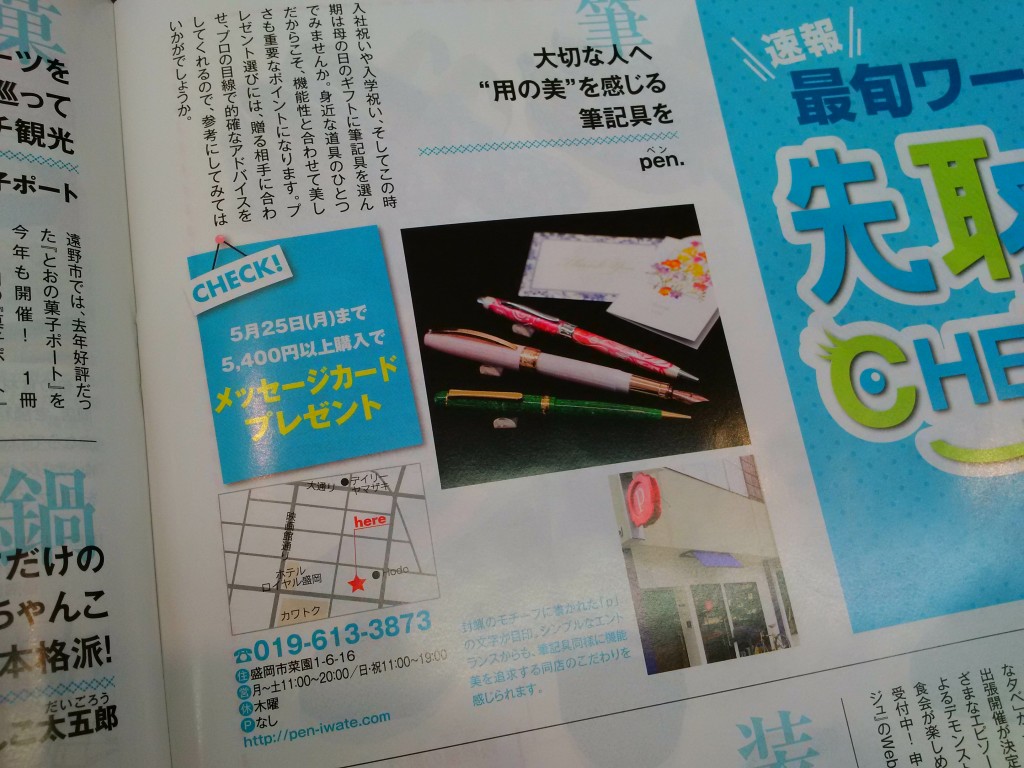 菓
ーツを
巡って
チ観光
子ポート
遠野市では、去年好評だっ
た『とおの菓子ポート』を
今年も開催！ 1冊
鍋
だけの
ちゃんこ
本格派!
だいごろう
こ太五郎
筆
大切な人へ
“用の美”を感じる
筆記具を
ペン
pen.
入社祝いや入学祝い、そしてこの時
期は母の日のギフトに筆記具を選ん
でみませんか。身近な道具のひとつ
だからこそ、機能性と合わせて美し
さも重要なポイントになります。プ
レゼント選びには、贈る相手に合わ
せ、プロの目線で的確なアドバイスを
してくれるので、参考にしてみては
いかがでしょうか。
CHECK!
5月25日(月)まで
5,400円以上購入で
メッセージカード
プレゼント
大通り
デイリー
ヤマザキ
映画館通り
here
ホテル
ロイヤル盛岡
Hodo
カワトク
☎019-613-3873
住盛岡市菜園1-6-16
営月~土11:00~20:00/日・祝11:00~19:00
休木曜
Pなし
http://pen-iwate.com
封蝋のモチーフに書かれた「p」
の文字が目印。シンプルなエント
ランスからも、筆記具同様に機能
美を追求する同店のこだわりを
感じられます。
速報
最旬ワー
先取
CHE
装
なタベ”か
出張開催が決定
さまなエピソー
よるデモンスト
食会が楽しめ
受付中！申
ジェ』のWeb